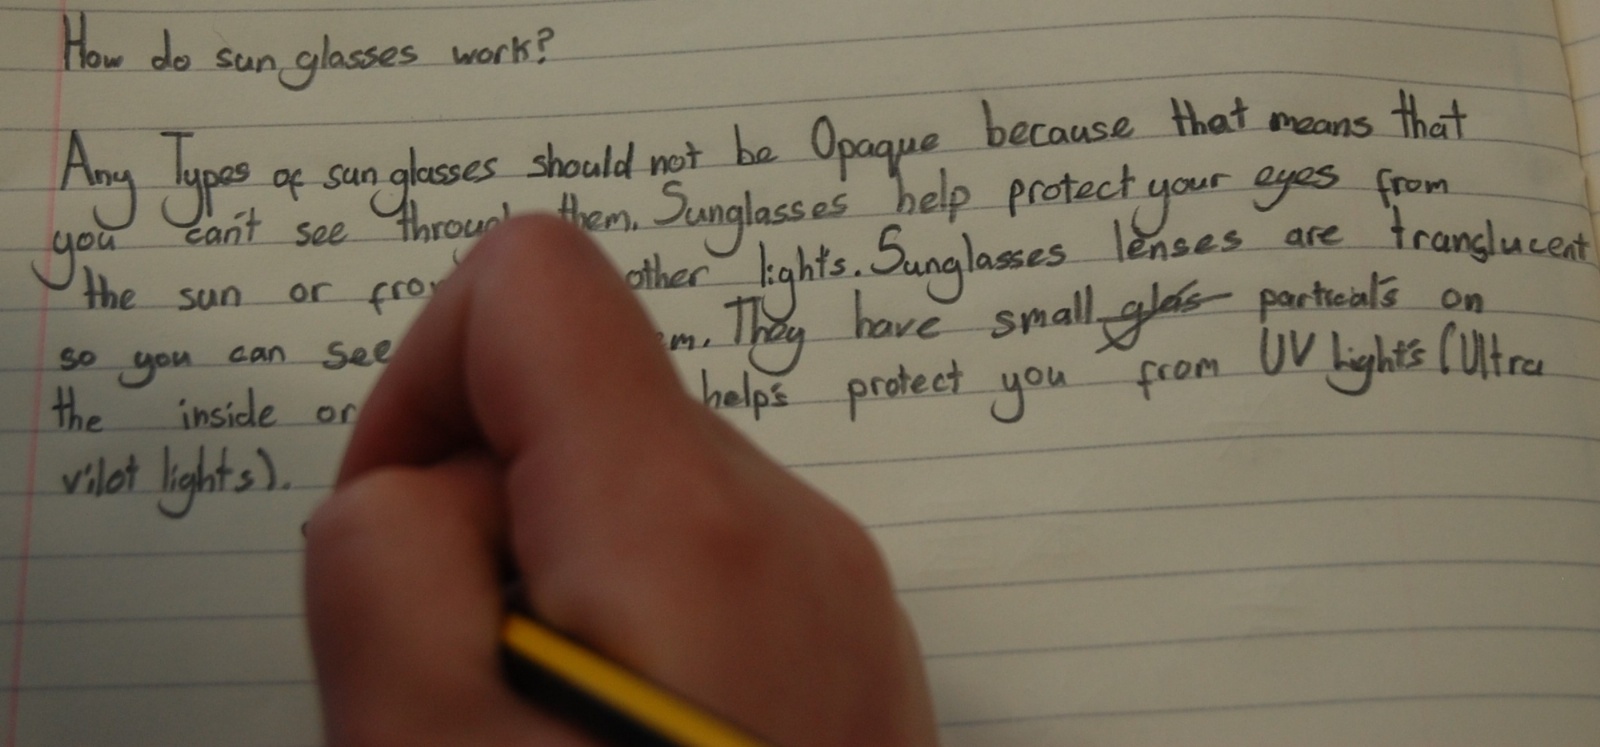 How do sunglasses work?
Any Types of sunglasses should not be Opaque because that means that
you can't see them. Sunglasses help protect your eyes from
the sun or other lights. Sunglasses lenses are translucent
so you can see They have small glas particals on
the inside help's protect you from UV Light's (Ultra
vilot lights).